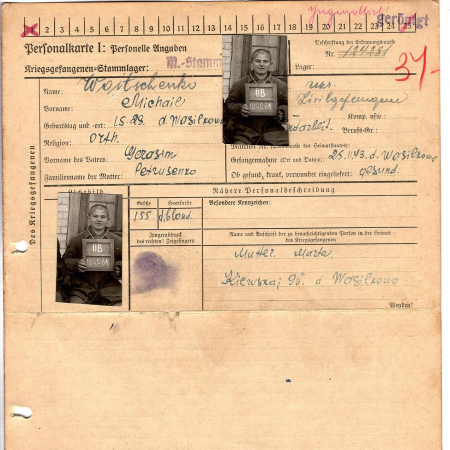 X 2 3 4 5 6 7 8 9 10 11 12 13 14 15 16 17 18 19 20 21 22 23 24 25
geröntgt
Personalkarte I: Personelle Angaben
Beschriftung der Erkennungsmarke
Nr. 124281
Kriegsgefangenen-Stammlager: M.-Stamm
Lager:
37-
Name: Wojtschenko
Vorname: Michail
Zivilgefangene
Geburtstag und -ort: d. Wasilkowo
Komp. usw.:
Religion: Orth.
Berufs-Gr.:
Vorname des Vaters: Gerasim
Gefangennahme (Ort und Datum): 25.11.43. d. Wasilkowo
Familienname der Mutter: Petrusenko
Ob gesund, krank, verwundet eingeliefert: gesund.
Des Kriegsgefangenen
Lichtbild
Nähere Personalbeschreibung
Größe
Haarfarbe
Besondere Kennzeichen:
155
d.blond.
Fingerabdruck
des rechten! Zeigefingers
Name und Anschrift der zu benachrichtigenden Person in der Heimat
des Kriegsgefangenen
Mutter Marta
d Wasilkowo
Wenden!